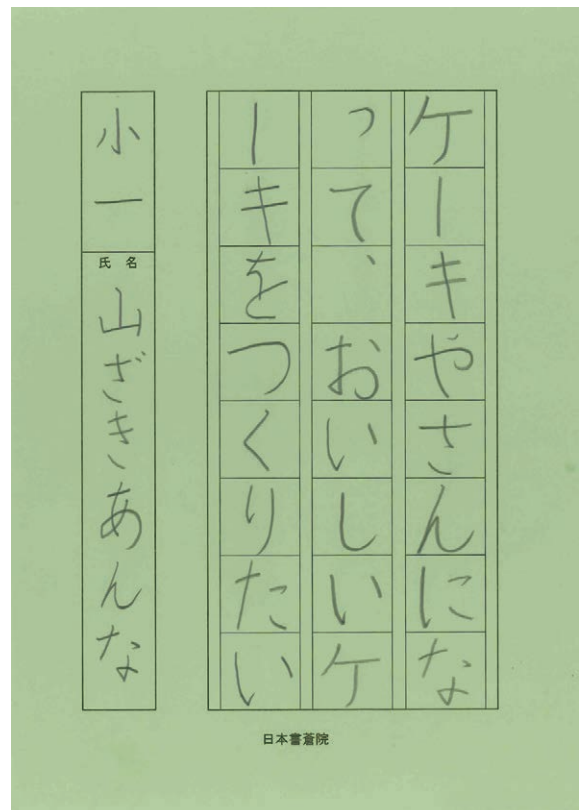 ケーキやさんにな
って、おいしいケ
ーキをつくりたい
小一
氏名
山ざきあんな
日本書蒼院